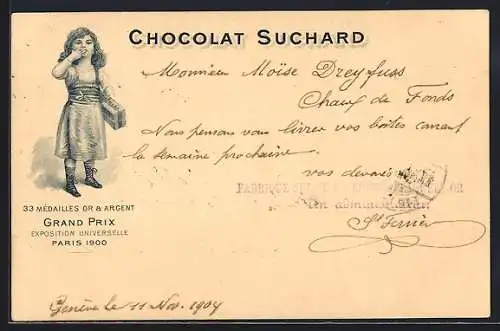 CHOCOLAT SUCHARD
Monsieur Moïse Dreyfuss
Chaux de Fonds
Nous pensons vous livrer vos boîtes courant
la semaine prochaine.
vos dévoués
FABRIQUE
Un administrateur:
33 MÉDAILLES OR & ARGENT
GRAND PRIX
EXPOSITION UNIVERSELLE
PARIS 1900
Genève le 11 Nov. 1904